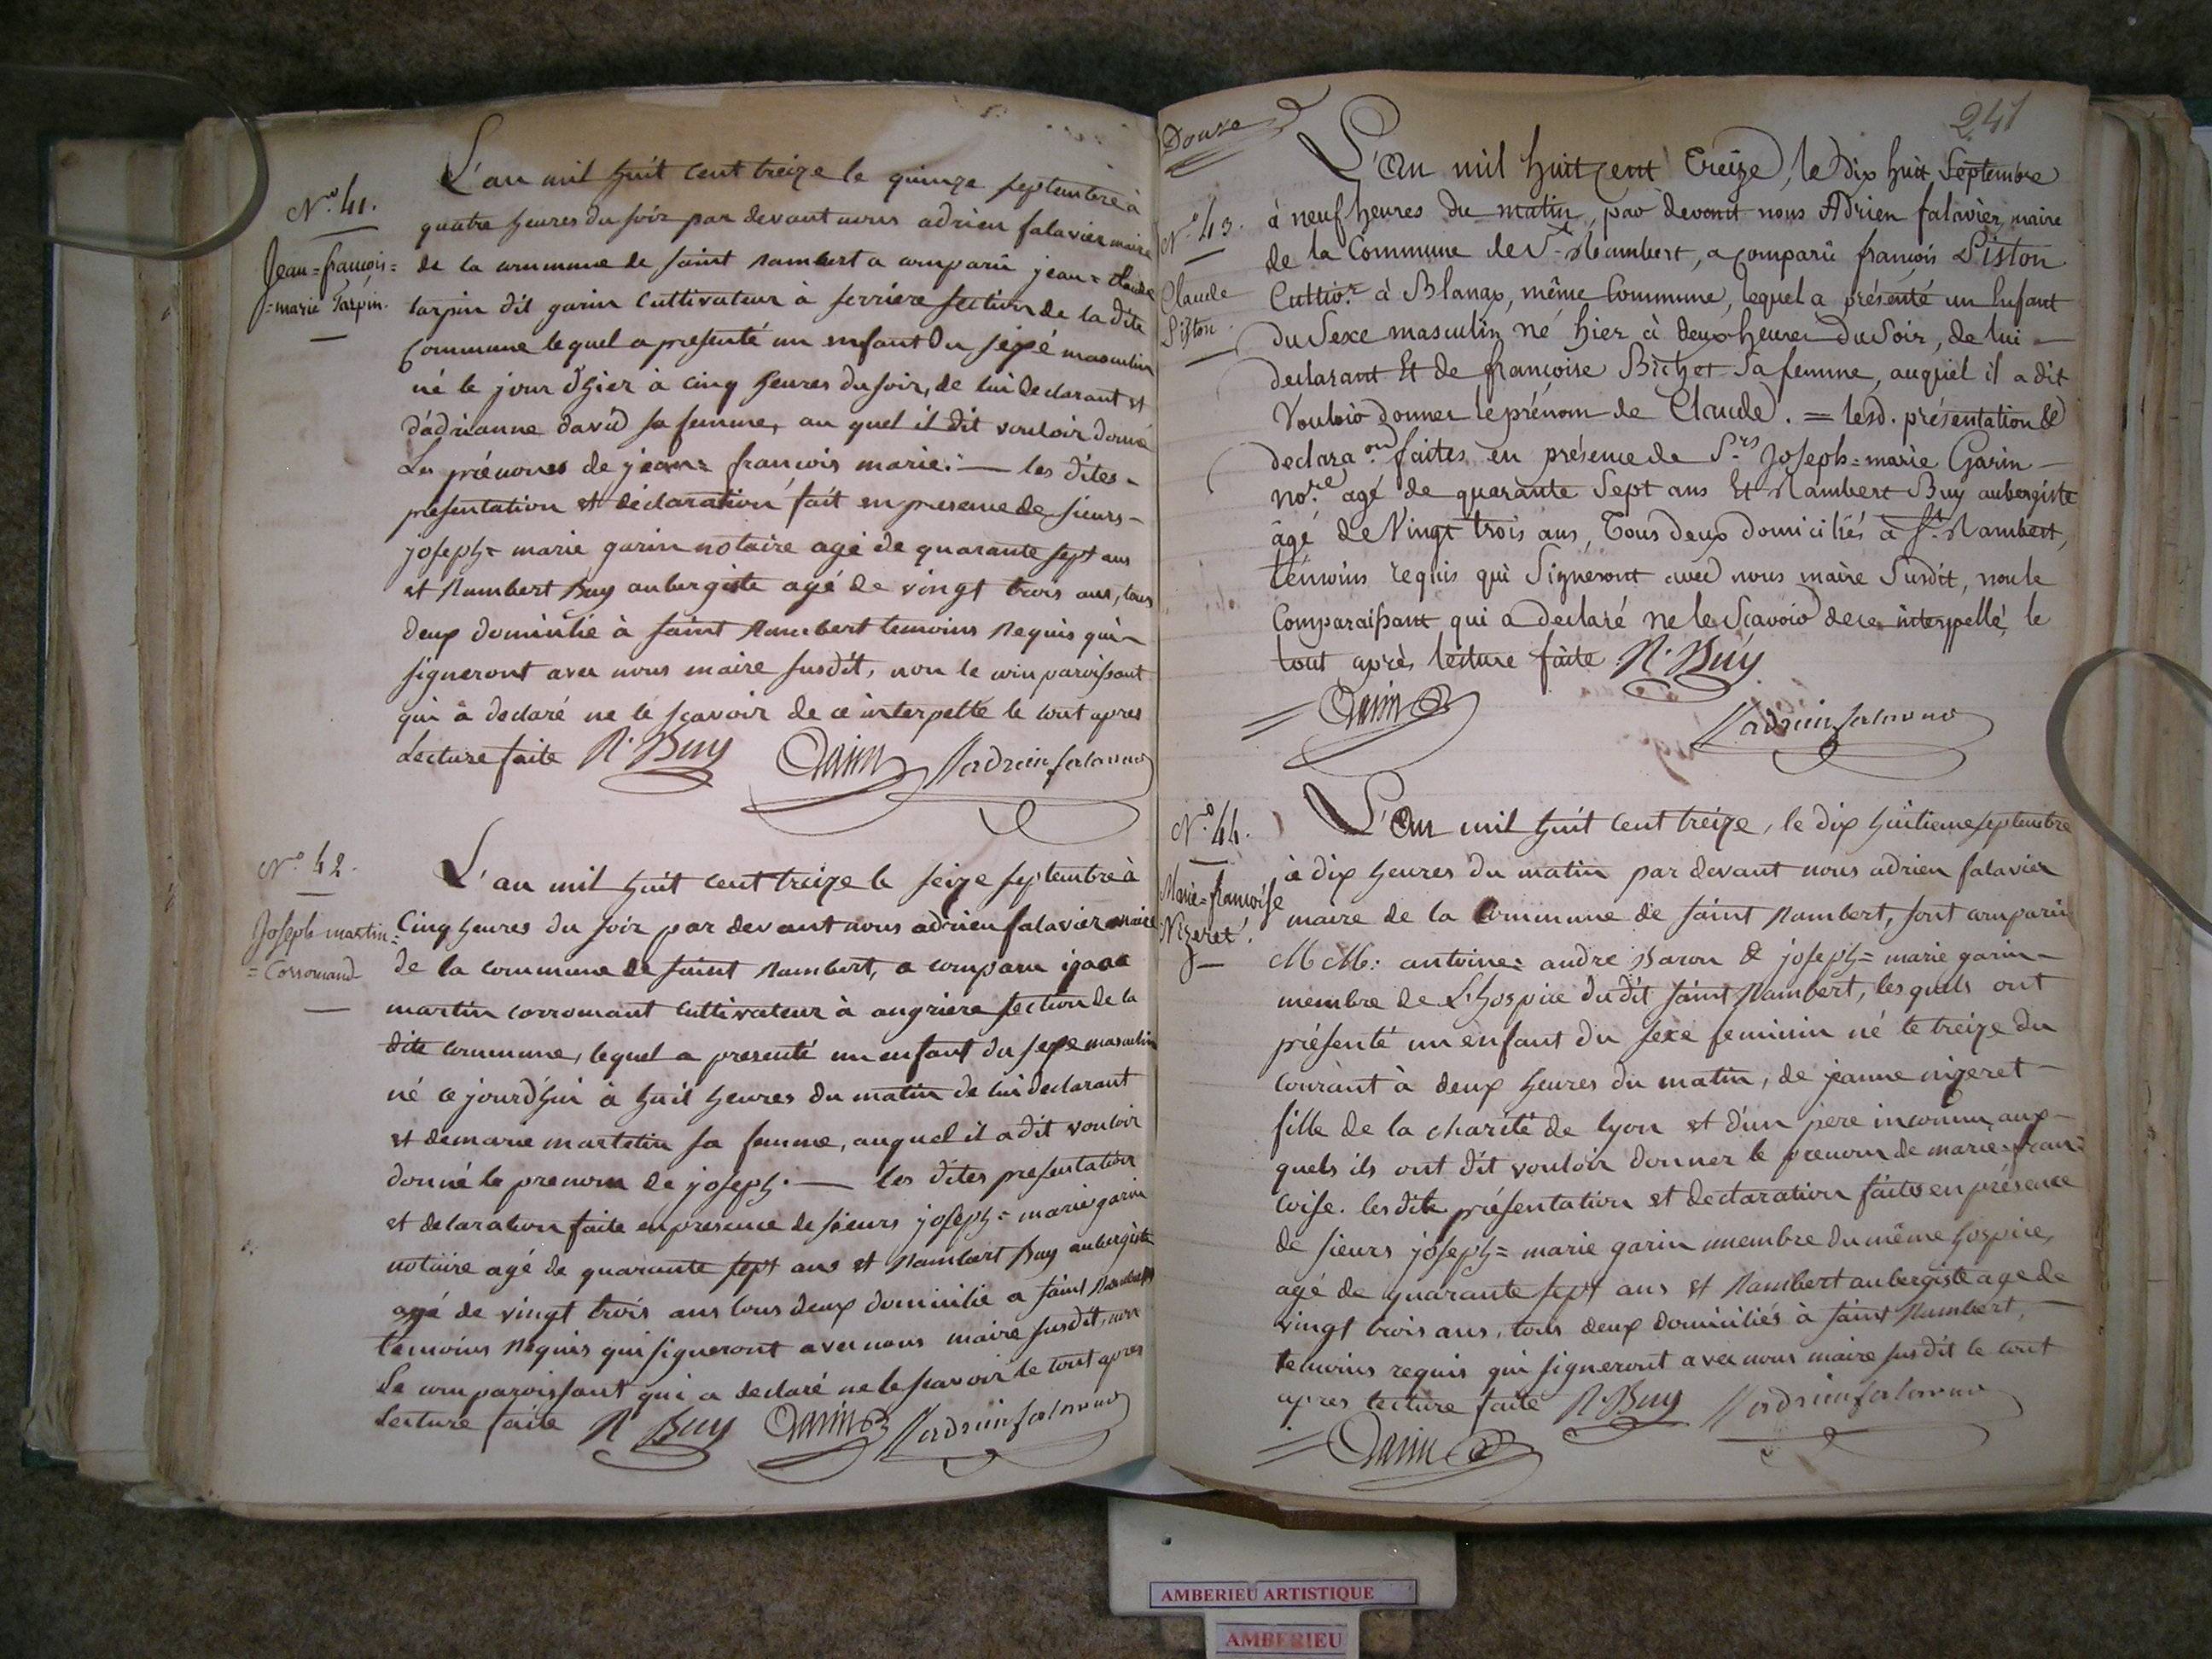 N.o 41.
Jean=françois=
=marie Tarpin.
L'an mil huit cent treize le quinze septembre à
quatre heures du soir par devant nous adrien falavier maire
de la commune de saint Rambert a comparû jean=claude
tarpin dit garin cultivateur à serriere section de la dite
commune lequel a presenté un enfant du sexe masculin
né le jour d'hier à cinq heures du soir, de lui declarant et
d'adrianne david sa femme, au quel il dit vouloir donné
Les prénoms de jean= francois marie. — les dites =
presentation et déclaration fait en presence de sieurs =
joseph= marie garin notaire agé de quarante sept ans
et Rambert Buy aubergiste agé de vingt trois ans, tous
deux domicilié à saint Rambert temoins Requis qui
signeront avec nous maire susdit, non le comparoissant
qui a declaré ne le sçavoir de ce interpellé le tout apres
Lecture faite R. Buy Garin adrien falavier
N.o 42.
Joseph martin=
=Corromand
L'an mil huit cent treize le seize septembre à
Cinq heures du soir par devant nous adrien falavier maire
de la commune de saint Rambert, a comparu
martin corromant cultivateur à angriere section de la
dite commune, lequel a presenté un enfant du sexe masculin
né ce jourd'hui à huit heures du matin de lui declarant
et de marie martetin sa femme, auquel il a dit vouloir
donné le prenom de joseph. — les dites presentation
et declaration faite en presence de sieurs joseph= marie garin
notaire agé de quarante sept ans et Rambert Buy aubergiste
agé de vingt trois ans tous deux domicilié a saint Rambert
temoins Requis qui signeront avec nous maire susdit, non
Le comparoissant qui a declaré ne le scavoir le tout apres
Lecture faite R Buy Garin adrien falavier
Douze
241
N.o 43.
Claude
Piston.
L'An mil huit cent treize, le dix huit Septembre
à neuf heures du matin, par devant nous Adrien falavier, maire
de la Commune de St. Rambert, a comparû françois Piston
Cultiv.r à Blanax, même Commune, lequel a présenté un Enfant
du Sexe masculin né hier à deux heures du Soir, de lui —
declarant Et de françoise Bichet Sa femme, auquel il a dit
Vouloir donner le prénom de Claude. = lesd. présentation &
declara.on faites en présence de S.rs Joseph=marie Garin —
no.re agé de quarante Sept ans Et Rambert Buy aubergiste
âgé de Vingt trois ans, Tous deux domiciliés à St. Rambert,
témoins requis qui Signeront avec nous maire Susdit, non le
Comparaissant qui a declaré ne le Scavoir de ce interpellé, le
tout après lecture faite. R. Buy
Garin adrien falavier
N.o 44.
Marie=françoise
Nizeret.
L'An mil huit cent treize, le dix huitieme septembre
à dix heures du matin par devant nous adrien falavier
maire de la Commune de saint Rambert, sont comparû
MM: antoine= andre Baron & joseph= marie garin =
membre de L'hospice du dit saint Rambert, les quels ont
présenté un enfant du sexe feminin né le treize du
courant à deux heures du matin, de jeanne nizeret —
fille de la charité de lyon et d'un pere inconnu, aux =
quels ils ont dit vouloir donner le prenom de marie=fran=
coise. les dite présentation et declaration faites en présence
de sieurs joseph= marie garin membre du même hospice,
agé de quarante sept ans et Rambert aubergiste agé de
vingt trois ans, tous deux domiciliés à saint Rambert, —
temoins requis qui signeront avec nous maire susdit le tout
apres lecture faite R. Buy adrien falavier
Garin
AMBERIEU ARTISTIQUE
AMBERIEU